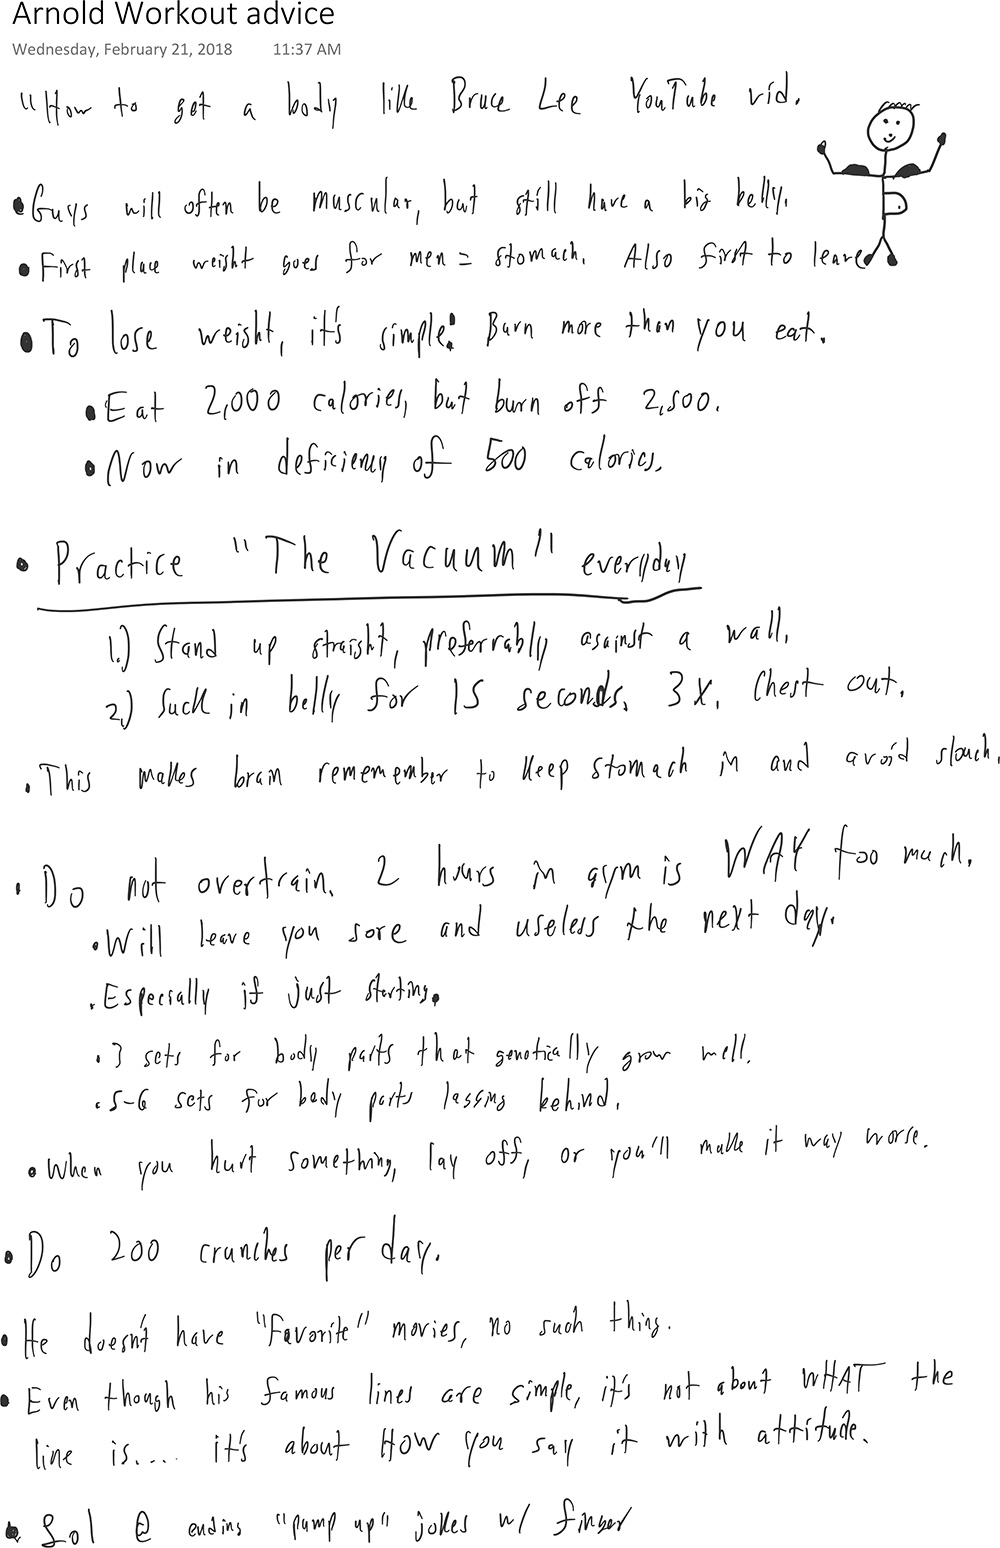 Arnold Workout advice
Wednesday, February 21, 2018 11:37 AM
"How to get a body like Bruce Lee YouTube vid.
• Guys will often be muscular, but still have a big belly.
• First place weight goes for men = stomach. Also first to leave
• To lose weight, it's simple: Burn more than you eat.
• Eat 2,000 calories, but burn off 2,500.
• Now in deficiency of 500 calories.
• Practice "The Vacuum" everyday
1.) Stand up straight, preferrably against a wall.
2.) Suck in belly for 15 seconds. 3x. Chest out.
• This makes brain rememember to keep stomach in and avoid slouch.
• Do not overtrain. 2 hours in gym is WAY too much.
• Will leave you sore and useless the next day.
• Especially if just starting.
• 3 sets for body parts that genetically grow well.
• 5-6 sets for body parts lagging behind.
• When you hurt something, lay off, or you'll make it way worse.
• Do 200 crunches per day.
• He doesn't have "Favorite" movies, no such thing.
• Even though his famous lines are simple, it's not about WHAT the
line is.... it's about HOW you say it with attitude.
• Lol @ ending "pump up" jokes w/ finger